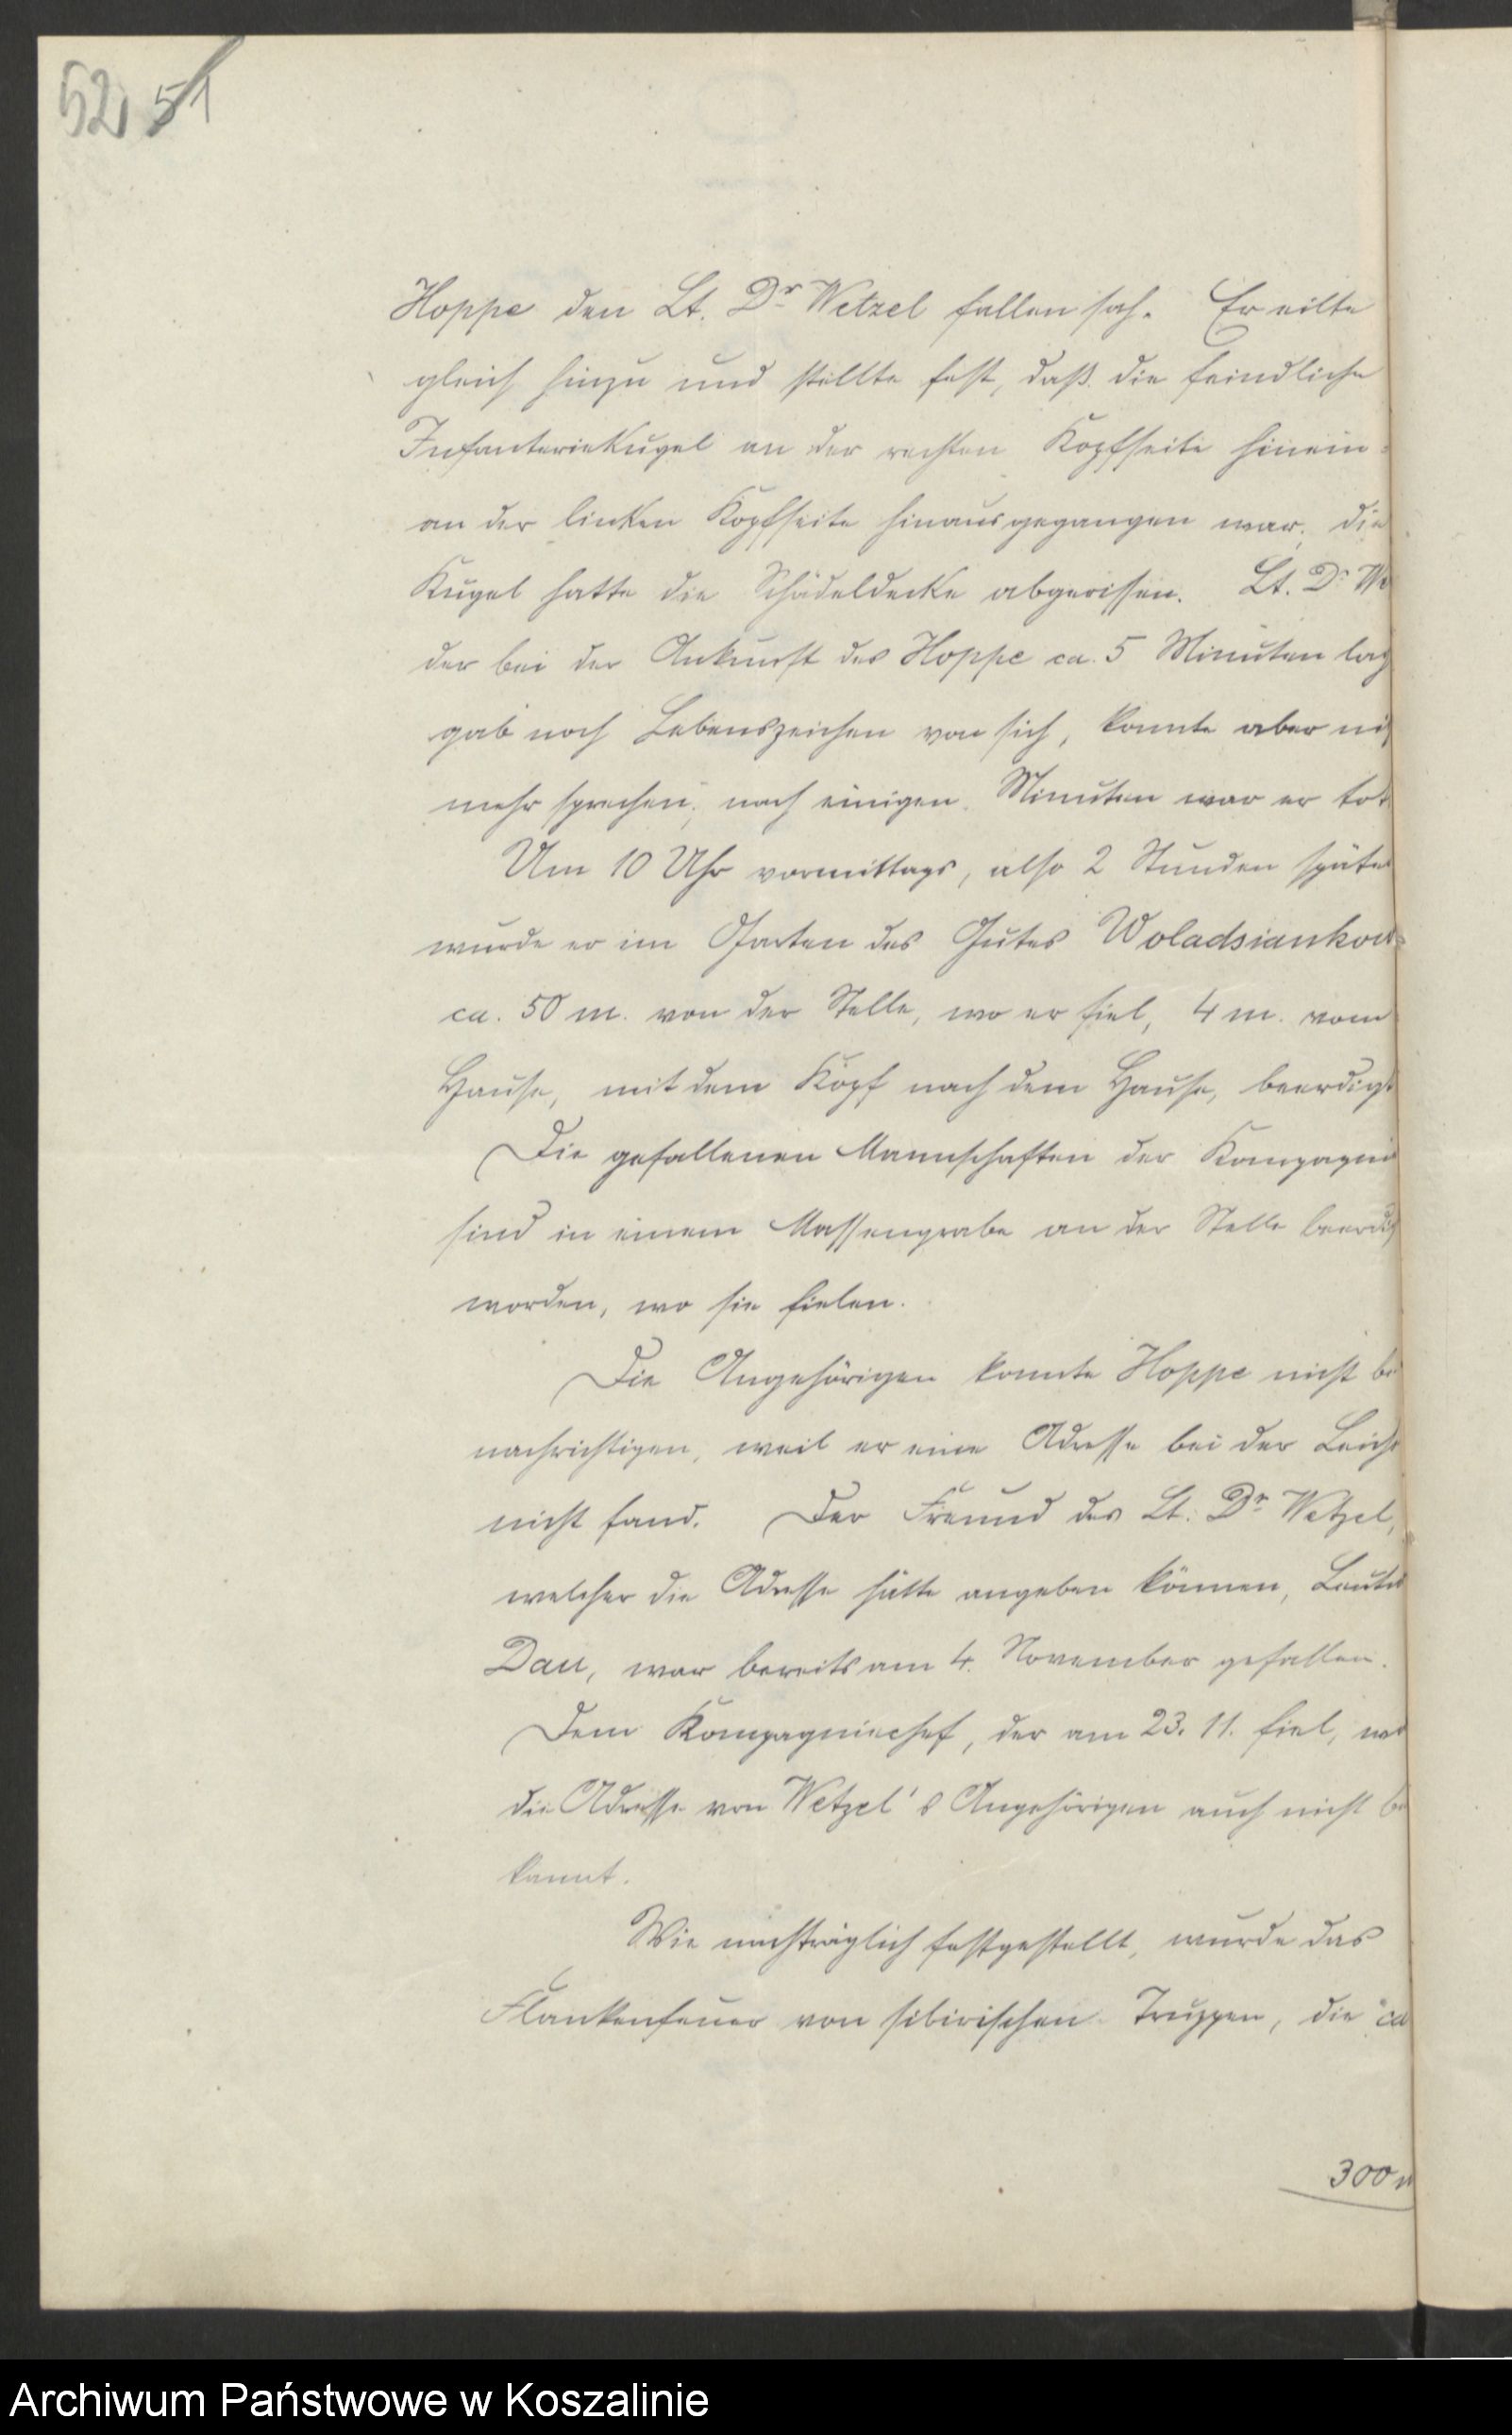 52 51
Hoppe den Lt. Dr Wetzel fallen sah. Er eilte
gleich hinzu und stellte fest, daß die feindliche
Infanteriekugel an der rechten Kopfseite hinein-
an der linken Kopfseite hinausgegangen war; die
Kugel hatte die Schädeldecke abgerissen. Lt. Dr We
der bei der Ankunft des Hoppe ca. 5 Minuten lag
gab noch Lebenszeichen von sich, konnte aber ni
mehr sprechen; nach einigen Minuten war er tot
Um 10 Uhr vormittags, also 2 Stunden später
wurde er im Garten des Gutes Woladsiankow
ca. 50 m. von der Stelle, wo er fiel, 4 m. vom
Hause, mit dem Kopf nach dem Hause, beerdigt
Die gefallenen Mannschaften der Kompagnie
sind in einem Massengrabe an der Stelle beerdig
worden, wo sie fielen.
Die Angehörigen konnte Hoppe nicht be
nachrichtigen, weil er eine Adresse bei der Leiche
nicht fand. Der Freund des Lt. Dr Wetzel,
welcher die Adresse hätte angeben können, Leutn
Dau, war bereits am 4. November gefallen.
Dem Kompagniechef, der am 23. 11. fiel, wa
die Adresse von Wetzel's Angehörigen auch nicht be
kannt.
Wie nachträglich festgestellt, wurde das
Flankenfeuer von sibirischen Truppen, die ca
300 m
Archiwum Państwowe w Koszalinie